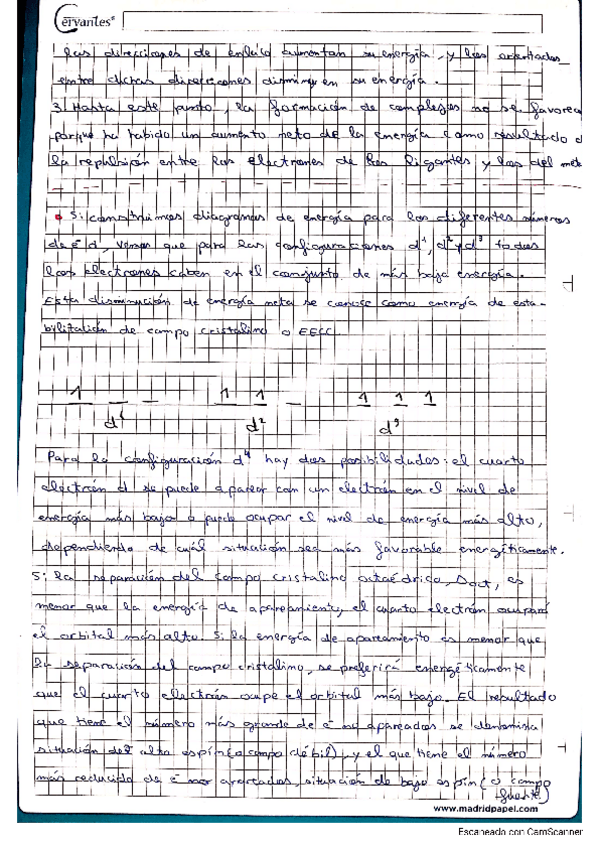 Cervantes
las direcciones de enlace aumentan su energía, y los orientados
entre dichas direcciones disminuyen su energía.
3. Hasta este punto, la formación de complejos no se favorece
porque ha habido un aumento neto de la energía como resultado d
la repulsión entre los electrones de los ligantes y los del meta
• Si construimos diagramas de energía para los diferentes números
de é d, vemos que para las configuraciones d¹, d² y d³ todos
los electrones caben en el conjunto de más baja energía.
Esta disminución de energía neta se conoce como energía de esta-
bilización de campo cristalino o EECC.
1 _ _ 1 1 _ 1 1 1
d¹ d² d³
Para la configuración d⁴ hay dos posibilidades: el cuarto
electrón d se puede aparear con un electrón en el nivel de
energía más bajo o puede ocupar el nivel de energía más alto,
dependiendo de cuál situación sea más favorable energéticamente.
Si la separación del campo cristalino octaédrico, Δoct, es
menor que la energía de apareamiento, el cuarto electrón ocupará
el orbital más alto. Si la energía de apareamiento es menor que
la separación del campo cristalino, se preferirá energéticamente
que el cuarto electrón ocupe el orbital más bajo. El resultado
que tiene el número más grande de é no apareados se denomina
situación de alto espín (o campo débil), y el que tiene el número
más reducido de é no apareados, situación de bajo espín (o campo
fuerte)
www.madridpapel.com
Escaneado con CamScanner